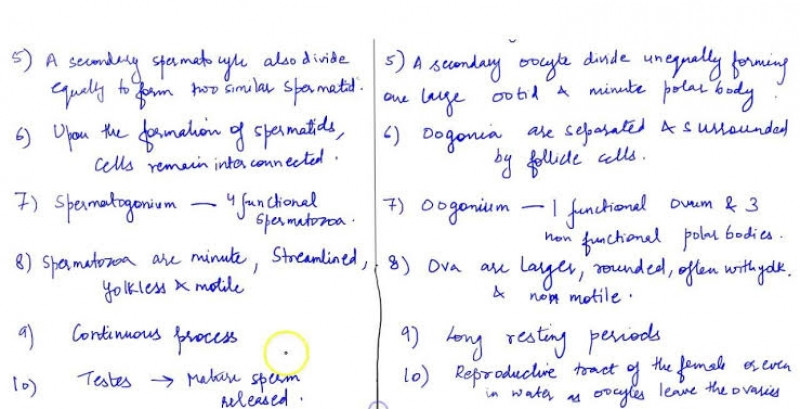 5) A secondary spermatocyte also divide
equally to form two similar spermatid.
6) Upon the formation of spermatids,
cells remain interconnected.
7) Spermatogonium — 4 functional
spermatozoa.
8) Spermatozoa are minute, Streamlined,
yolkless & motile
9) Continuous process
10) Testes → Mature sperm
released.
5) A secondary oocyte divide unequally forming
one large ootid & minute polar body.
6) Oogonia are separated & surrounded
by follicle cells.
7) Oogonium — 1 functional ovum & 3
non functional polar bodies.
8) Ova are larger, rounded, often with yolk.
& non motile.
9) Long resting periods
10) Reproductive tract of the female or even
in water as oocytes leave the ovaries